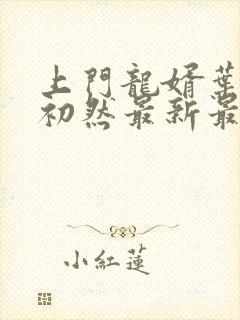 上門龍婿葉
初然最新最
小紅蓮